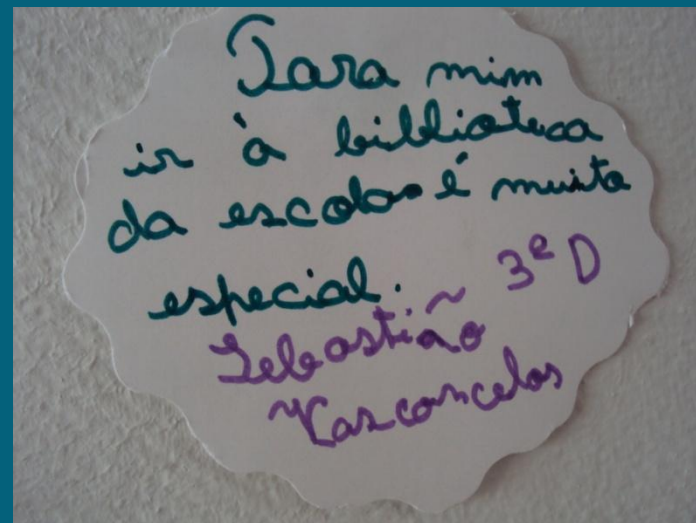 Para mim
ir à biblioteca
da escola é muito
especial.
3º D
Sebastião
Vasconcelos